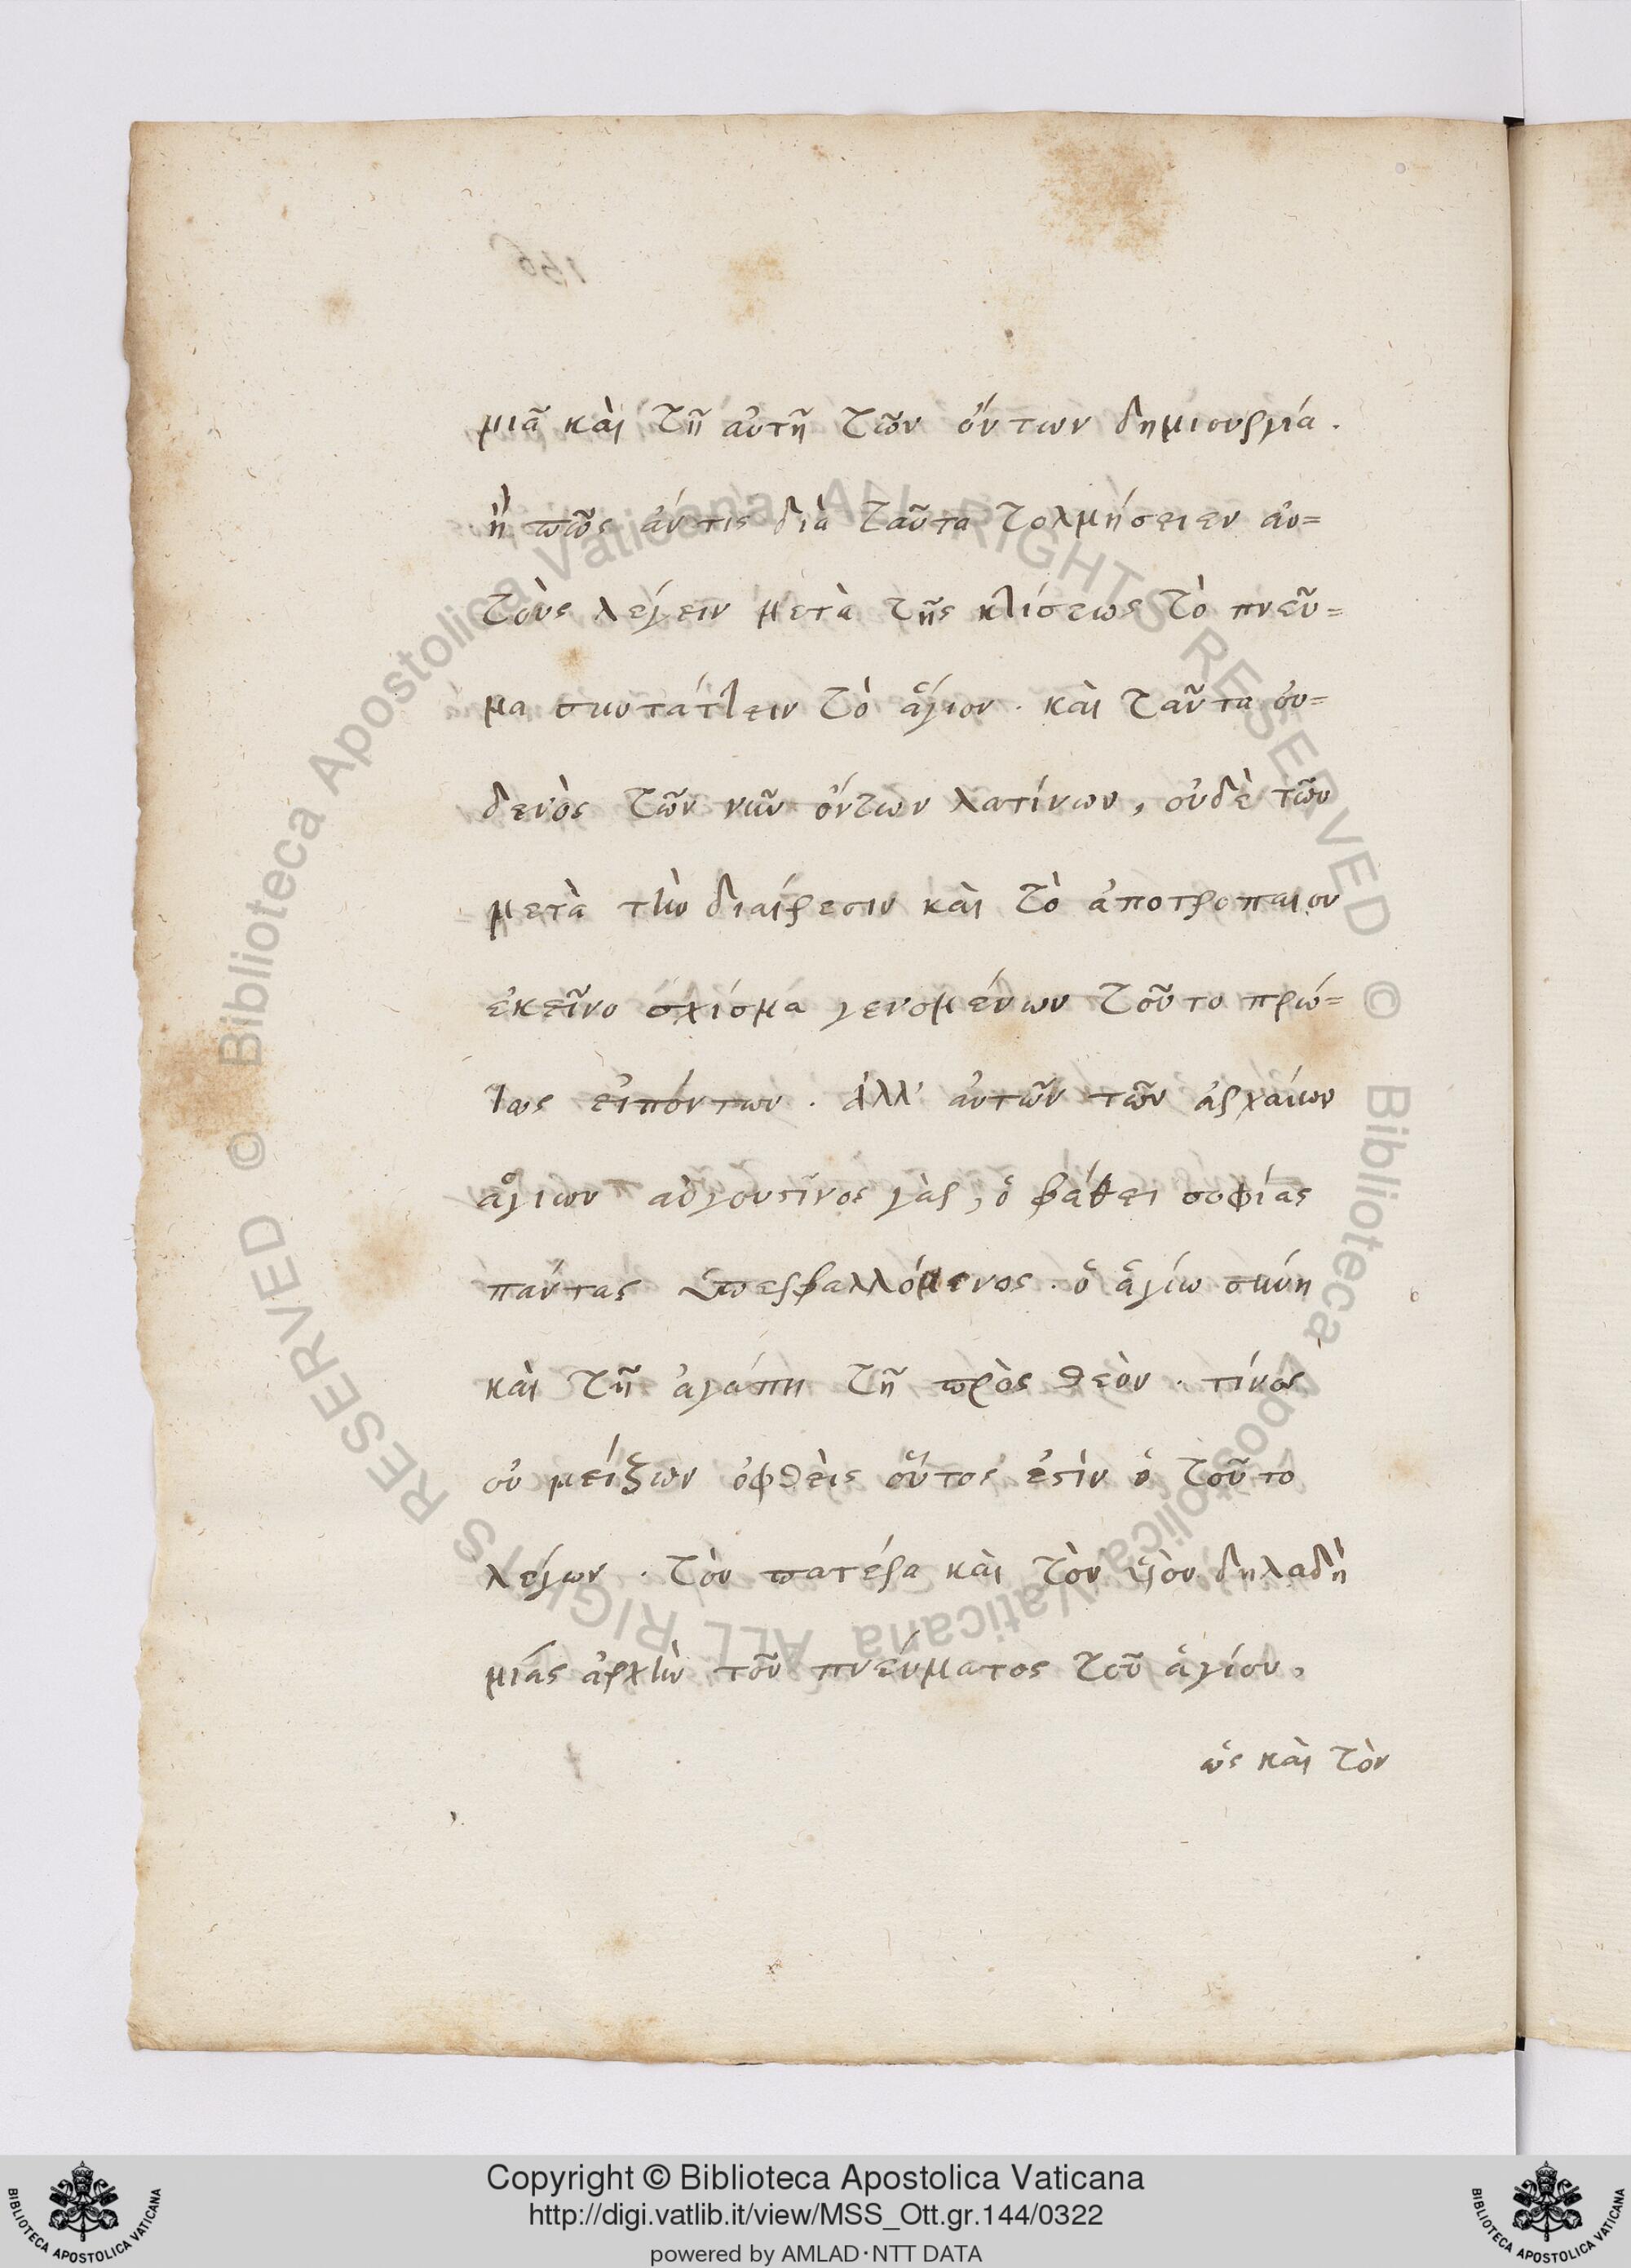 156
μιᾶ καὶ τῆ αὐτῆ τῶν ὄντων δημιουργία.
ἢ πῶς ἄν τις διὰ ταῦτα τολμήσειεν αὐ=
τοὺς λέγειν μετὰ τῆς κτίσεως τὸ πνεῦ=
μα συντάττειν τὸ ἅγιον. καὶ ταῦτα οὐ=
δενὸς τῶν νῦν ὄντων λατίνων, οὐδὲ τῶν
μετὰ τὴν διαίρεσιν καὶ τὸ ἀποτροπαιον
ἐκεῖνο σχίσμα γενομένων τοῦτο πρώ=
τως εἰπόντων. ἀλλ' αὐτῶν τῶν ἀρχαίων
ἁγίων αὐγουστῖνος γὰρ, ὁ βάθει σοφίας
πάντας ὑπερβαλλόμενος. ὁ ἁγιωσύνη
καὶ τῆ ἀγάπη τῆ πρὸς θεὸν. τίνος
οὐ μείζων ὀφθεὶς οὗτος ἐστὶν ὁ τοῦτο
λέγων. τὸν πατέρα καὶ τὸν υἱὸν δηλαδὴ
μίας ἀρχὴν τοῦ πνεύματος τοῦ ἁγίου,
ὡς καὶ τὸν
© Biblioteca Apostolica Vaticana ALL RIGHTS RESERVED © Biblioteca Apostolica Vaticana ALL RIGHTS RESERVED
Copyright © Biblioteca Apostolica Vaticana
http://digi.vatlib.it/view/MSS_Ott.gr.144/0322
powered by AMLAD·NTT DATA
BIBLIOTECA APOSTOLICA VATICANA
BIBLIOTECA APOSTOLICA VATICANA